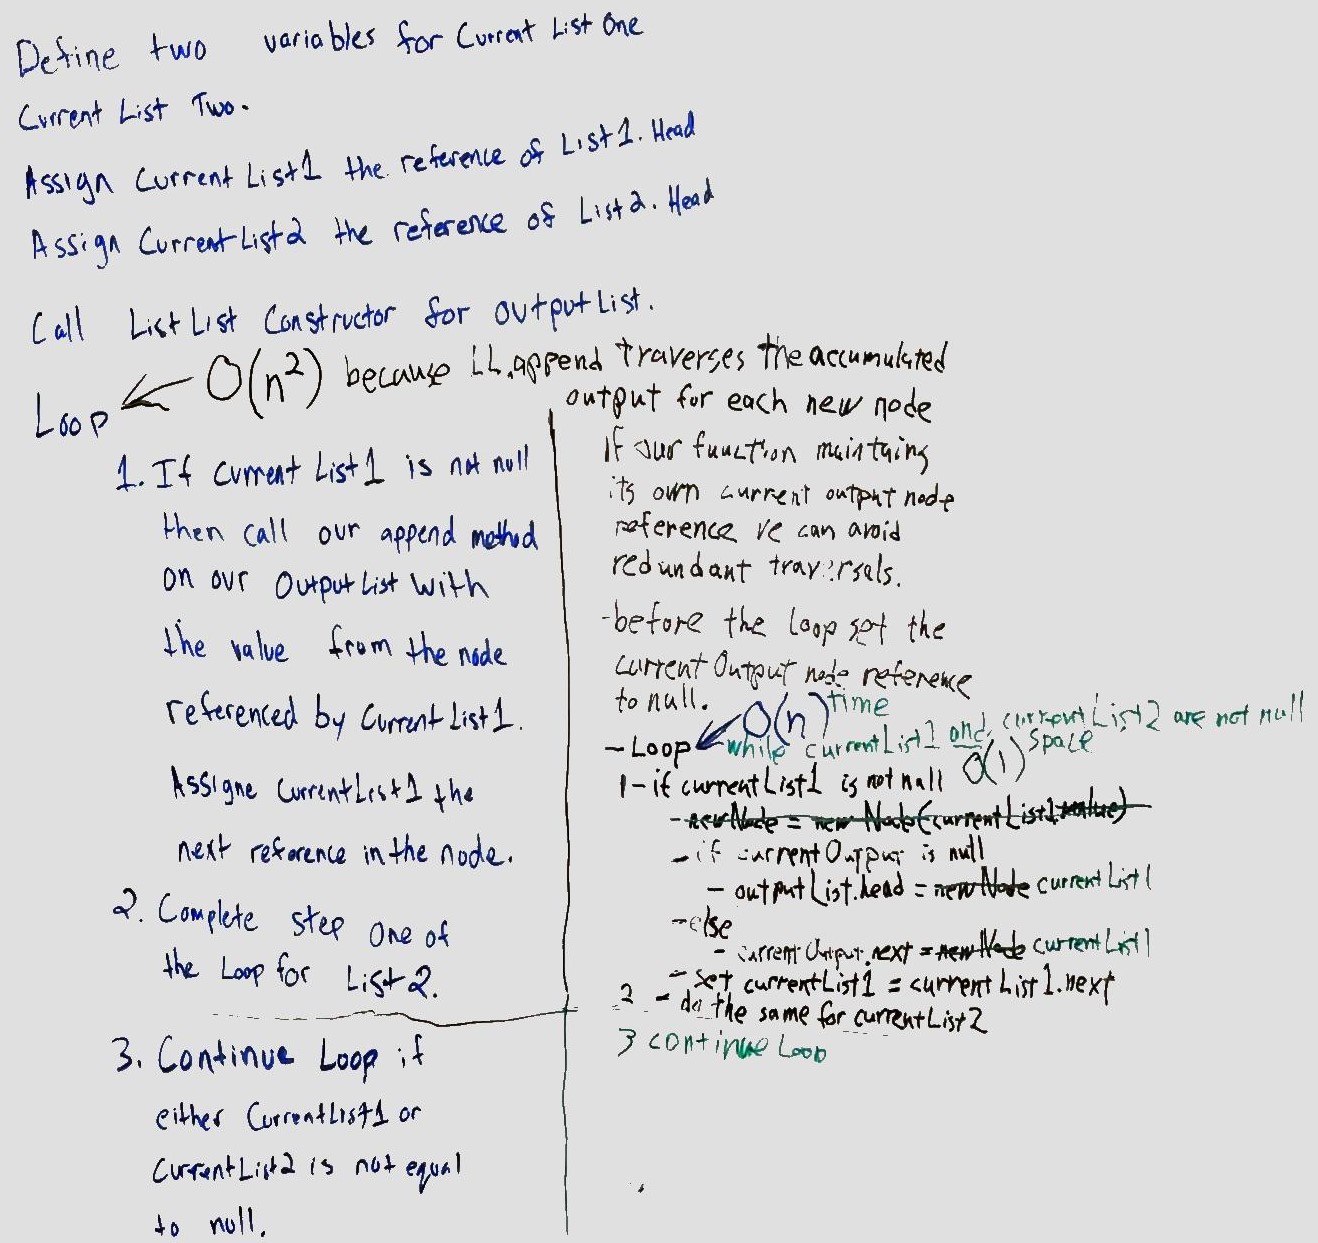 Define two variables for Current List One
Current List Two.
Assign Current List1 the reference of List1. Head
Assign Current List2 the reference of List2. Head
Call List List Constructor for output List.
Loop ← O(n²) because LL.append traverses the accumulated
output for each new node
1. If current List1 is not null
then call our append method
on our Output List with
the value from the node
referenced by Current List1.
Assigne Current List1 the
next reference in the node.
2. Complete step one of
the Loop for List2.
3. Continue Loop if
either Current List1 or
Current List2 is not equal
to null.
If our function maintaing
its own current output node
reference we can avoid
redundant traversals.
-before the loop set the
current Output node reference
to null.
O(n) time
- Loop ← while currentList1 and currentList2 are not null
O(1) space
1- if currentList1 is not null
- newNode = new Node(currentList1.value)
- if currentOutput is null
- outputList.head = newNode currentList1
-else
- currentOutput.next = newNode currentList1
- set currentList1 = currentList1.next
2 - do the same for currentList2
3 continue Loop